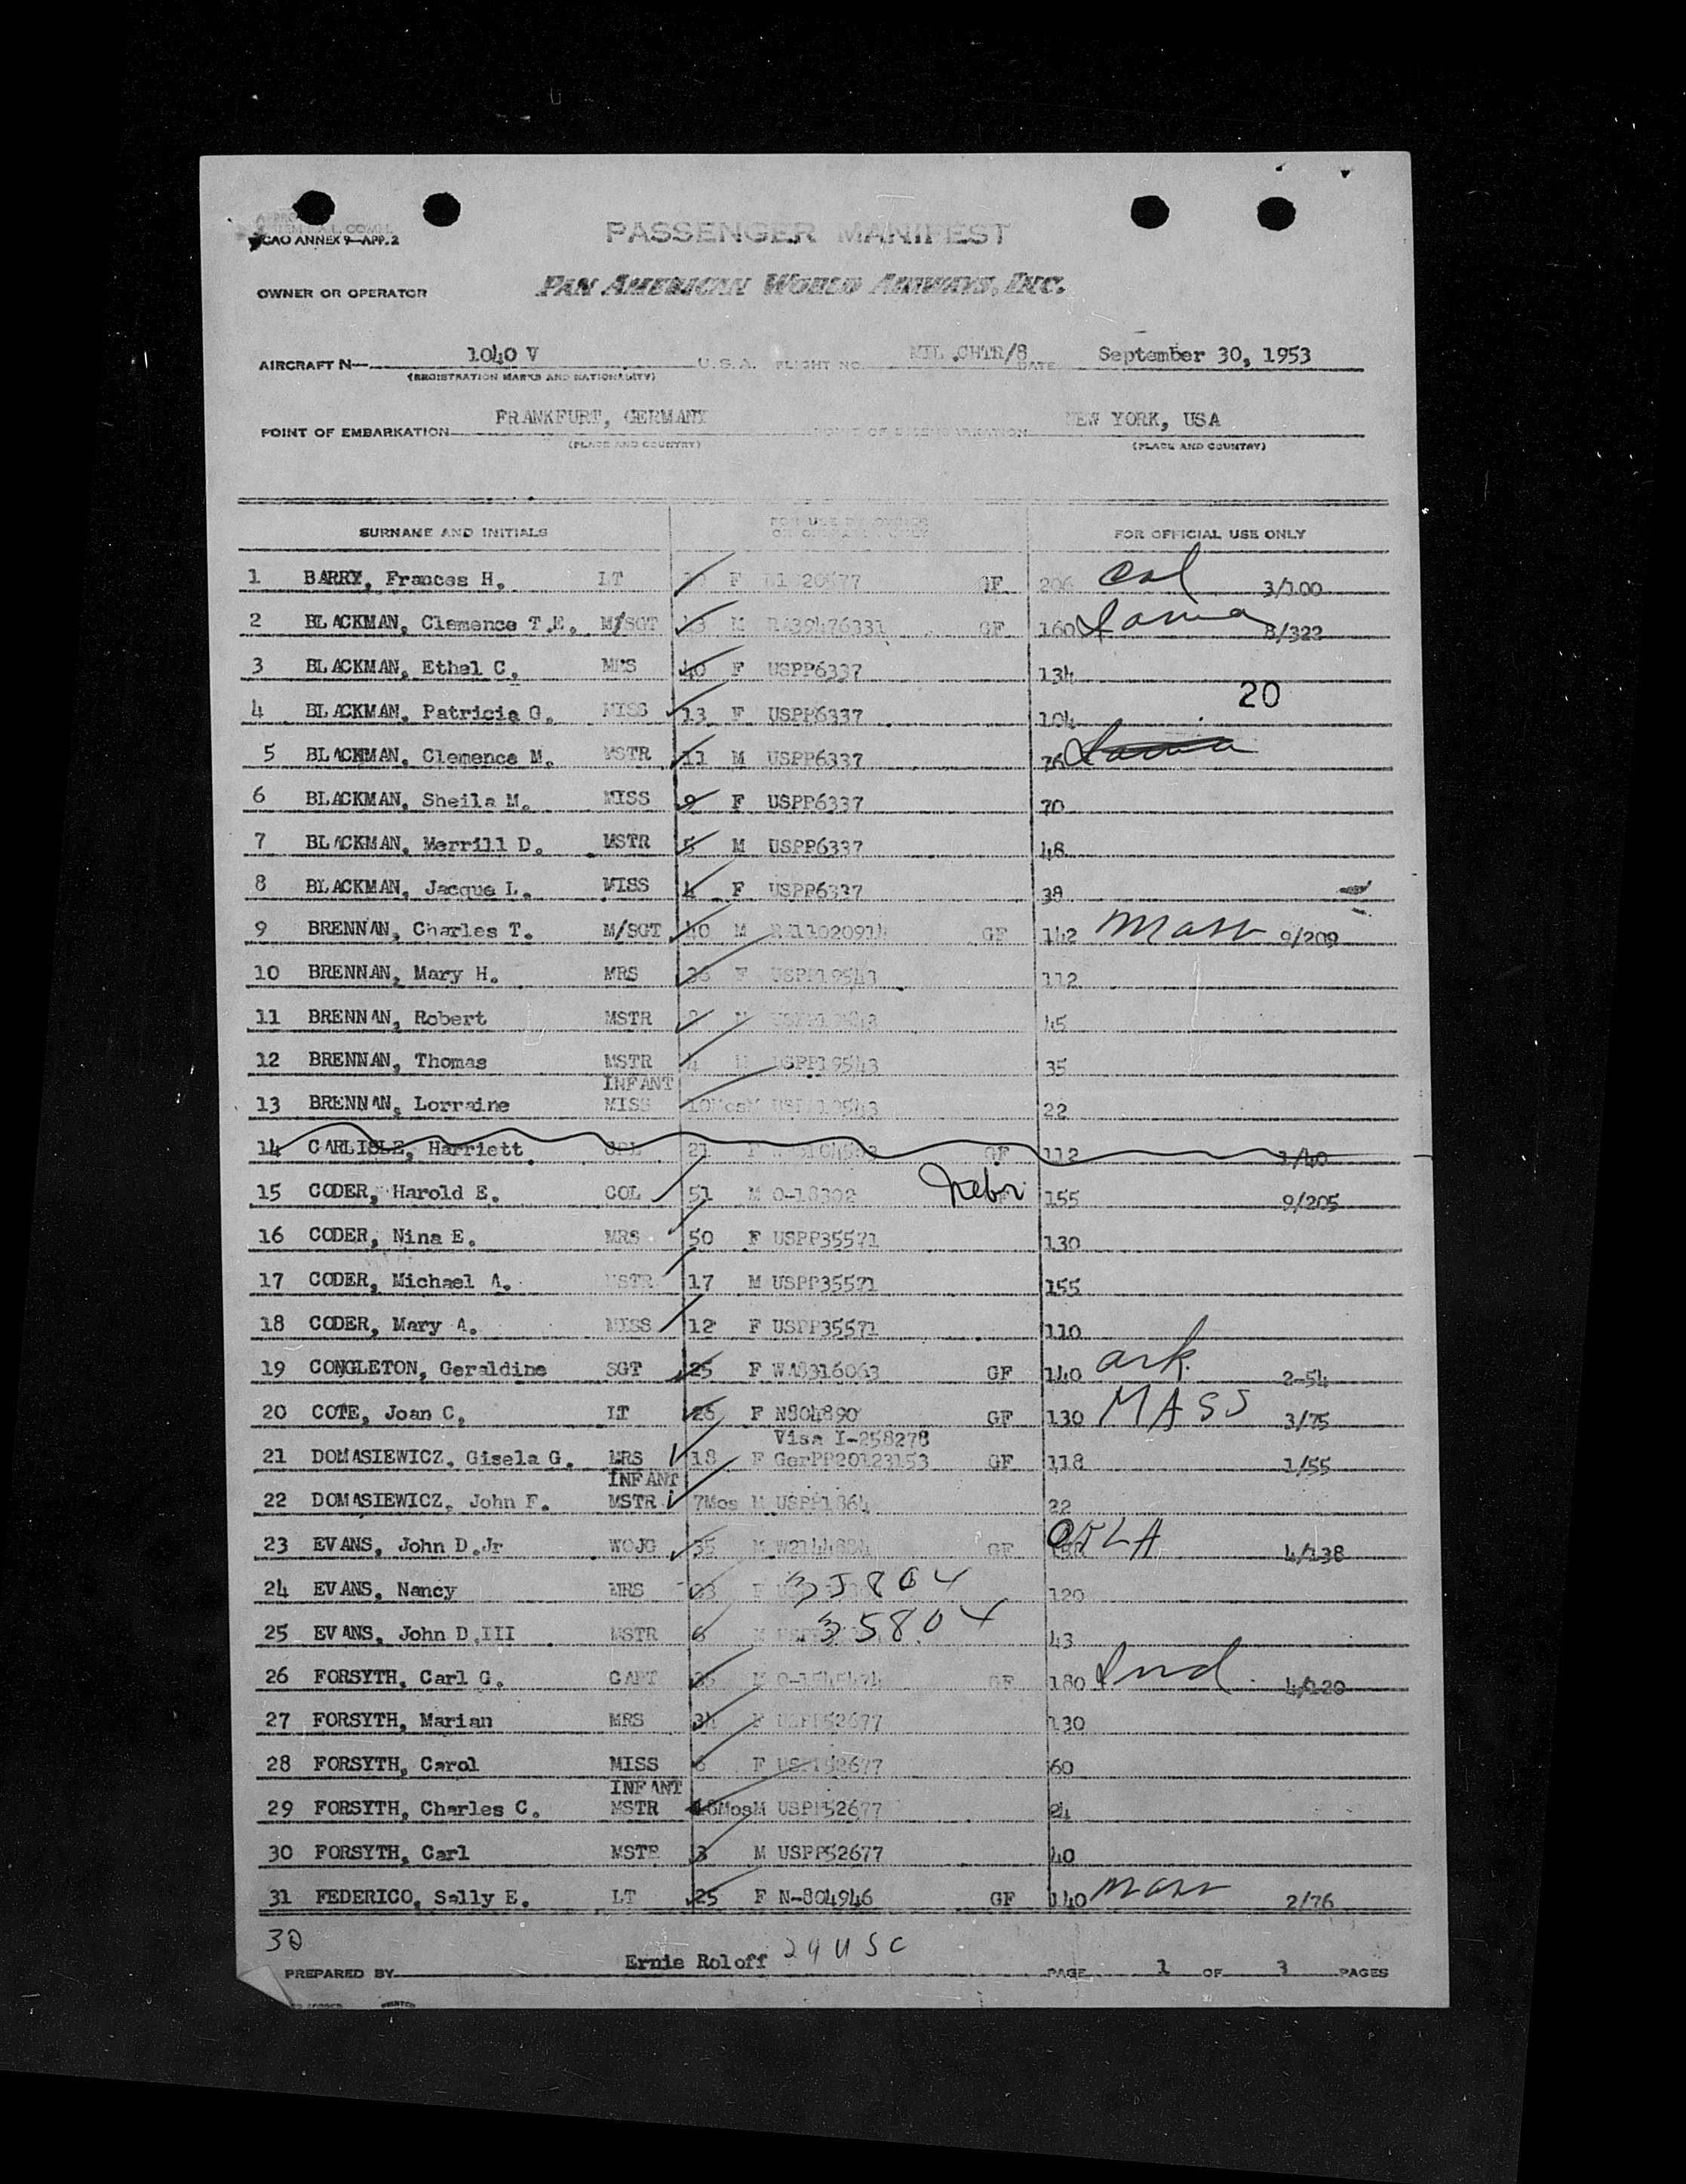 ICAO ANNEX 9—APP. 2
PASSENGER MANIFEST
OWNER OR OPERATOR PAN AMERICAN WORLD AIRWAYS, INC.
AIRCRAFT N— 1040 V U.S.A. FLIGHT NO. MIL.CHTR/8 DATE September 30, 1953
(REGISTRATION MARKS AND NATIONALITY)
POINT OF EMBARKATION FRANKFURT, GERMANY POINT OF DISEMBARKATION NEW YORK, USA
(PLACE AND COUNTRY) (PLACE AND COUNTRY)
SURNAME AND INITIALS FOR USE BY OWNER OR OPERATOR ONLY FOR OFFICIAL USE ONLY
1 BARRY, Frances H. LT F GF 206 Cal 3/100
2 BLACKMAN, Clemence T.E. M/SGT M RA39476331 GF 160 Iowa 8/322
3 BLACKMAN, Ethel C. MRS 40 F USPP6337 134
20
4 BLACKMAN, Patricia G. MISS 13 F USPP6337 104
5 BLACKMAN, Clemence M. MSTR 11 M USPP6337 76 Iowa
6 BLACKMAN, Sheila M. MISS 9 F USPP6337 70
7 BLACKMAN, Merrill D. MSTR 5 M USPP6337 48
8 BLACKMAN, Jacque L. MISS 4 F USPP6337 38
9 BRENNAN, Charles T. M/SGT 40 M GF 142 Mass 9/209
10 BRENNAN, Mary H. MRS 36 F USPP19543 112
11 BRENNAN, Robert MSTR M USPP19543 45
12 BRENNAN, Thomas MSTR 4 M USPP19543 35
INFANT
13 BRENNAN, Lorraine MISS 10Mos USPP19543 22
14 CARLISLE, Harriett CPL 21 F GF 112 1/40
15 CODER, Harold E. COL 51 M O-18302 Nebr 155 9/205
16 CODER, Nina E. MRS 50 F USPP35571 130
17 CODER, Michael A. MSTR 17 M USPP35571 155
18 CODER, Mary A. MISS 12 F USPP35571 110
19 CONGLETON, Geraldine SGT 25 F WA8316063 GF 140 ark. 2-54
20 COTE, Joan C. LT 26 F N804890 GF 130 MASS 3/75
Visa I-258278
21 DOMASIEWICZ, Gisela G. MRS 18 F GerPP20123153 GF 118 1/55
INFANT
22 DOMASIEWICZ, John F. MSTR 7Mos M USPP1864 22
23 EVANS, John D.Jr WOJG 35 M W2144884 GF OKLA 4/138
24 EVANS, Nancy MRS F 35804 120
25 EVANS, John D.III MSTR 6 M 35804 43
26 FORSYTH, Carl G. CAPT 35 M O-1545474 GF 180 Ind. 4/120
27 FORSYTH, Marian MRS 34 F USPP52677 130
28 FORSYTH, Carol MISS 6 F USPP52677 60
INFANT
29 FORSYTH, Charles C. MSTR 18Mos M USPP52677 24
30 FORSYTH, Carl MSTR 3 M USPP52677 40
31 FEDERICO, Sally E. LT 25 F N-804946 GF 140 Mass 2/76
30
PREPARED BY Ernie Roloff 29 USC PAGE 1 OF 3 PAGES